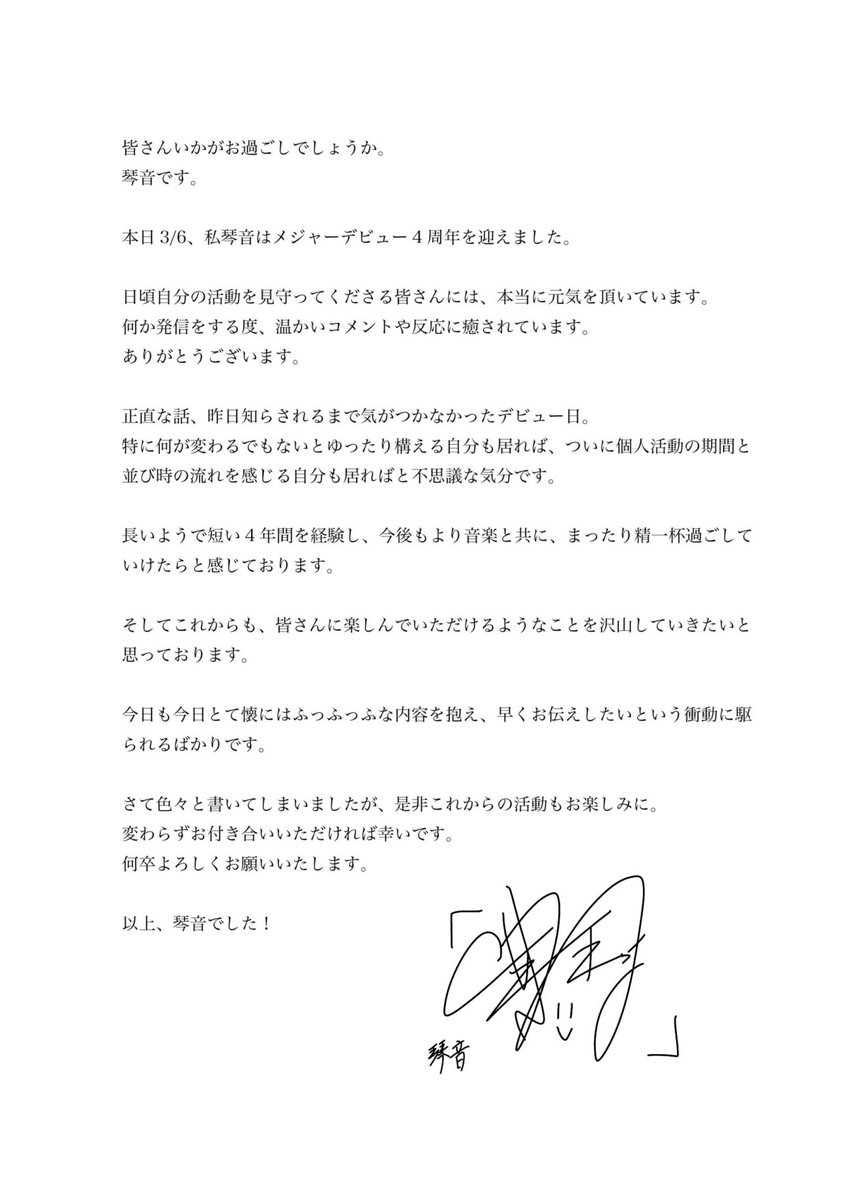 皆さんいかがお過ごしでしょうか。
琴音です。
本日 3/6、私琴音はメジャーデビュー 4 周年を迎えました。
日頃自分の活動を見守ってくださる皆さんには、本当に元気を頂いています。
何か発信をする度、温かいコメントや反応に癒されています。
ありがとうございます。
正直な話、昨日知らされるまで気がつかなかったデビュー日。
特に何が変わるでもないとゆったり構える自分も居れば、ついに個人活動の期間と
並び時の流れを感じる自分も居ればと不思議な気分です。
長いようで短い 4 年間を経験し、今後もより音楽と共に、まったり精一杯過ごして
いけたらと感じております。
そしてこれからも、皆さんに楽しんでいただけるようなことを沢山していきたいと
思っております。
今日も今日とて懐にはふっふっふな内容を抱え、早くお伝えしたいという衝動に駆
られるばかりです。
さて色々と書いてしまいましたが、是非これからの活動もお楽しみに。
変わらずお付き合いいただければ幸いです。
何卒よろしくお願いいたします。
以上、琴音でした！
琴音